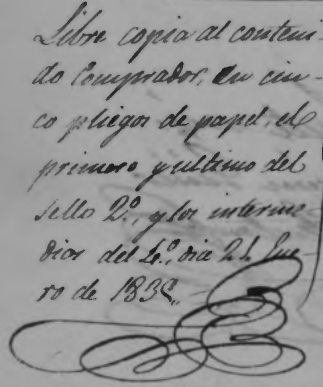 Libre copia al conteni-
do Comprador, en cin-
co pliegos de papel, el
primero y ultimo del
sello 2º, y los interme-
dios del 4º, dia 21 Ene-
ro de 1838.